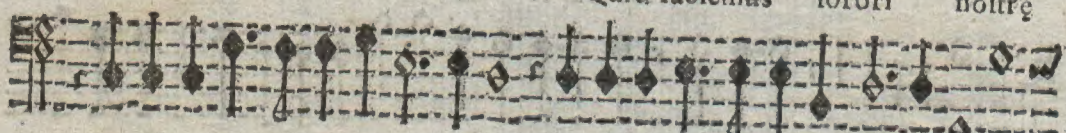 Quid faciemus ſorori noſtrę